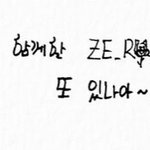 함께한 ZE_R
또 있나아~